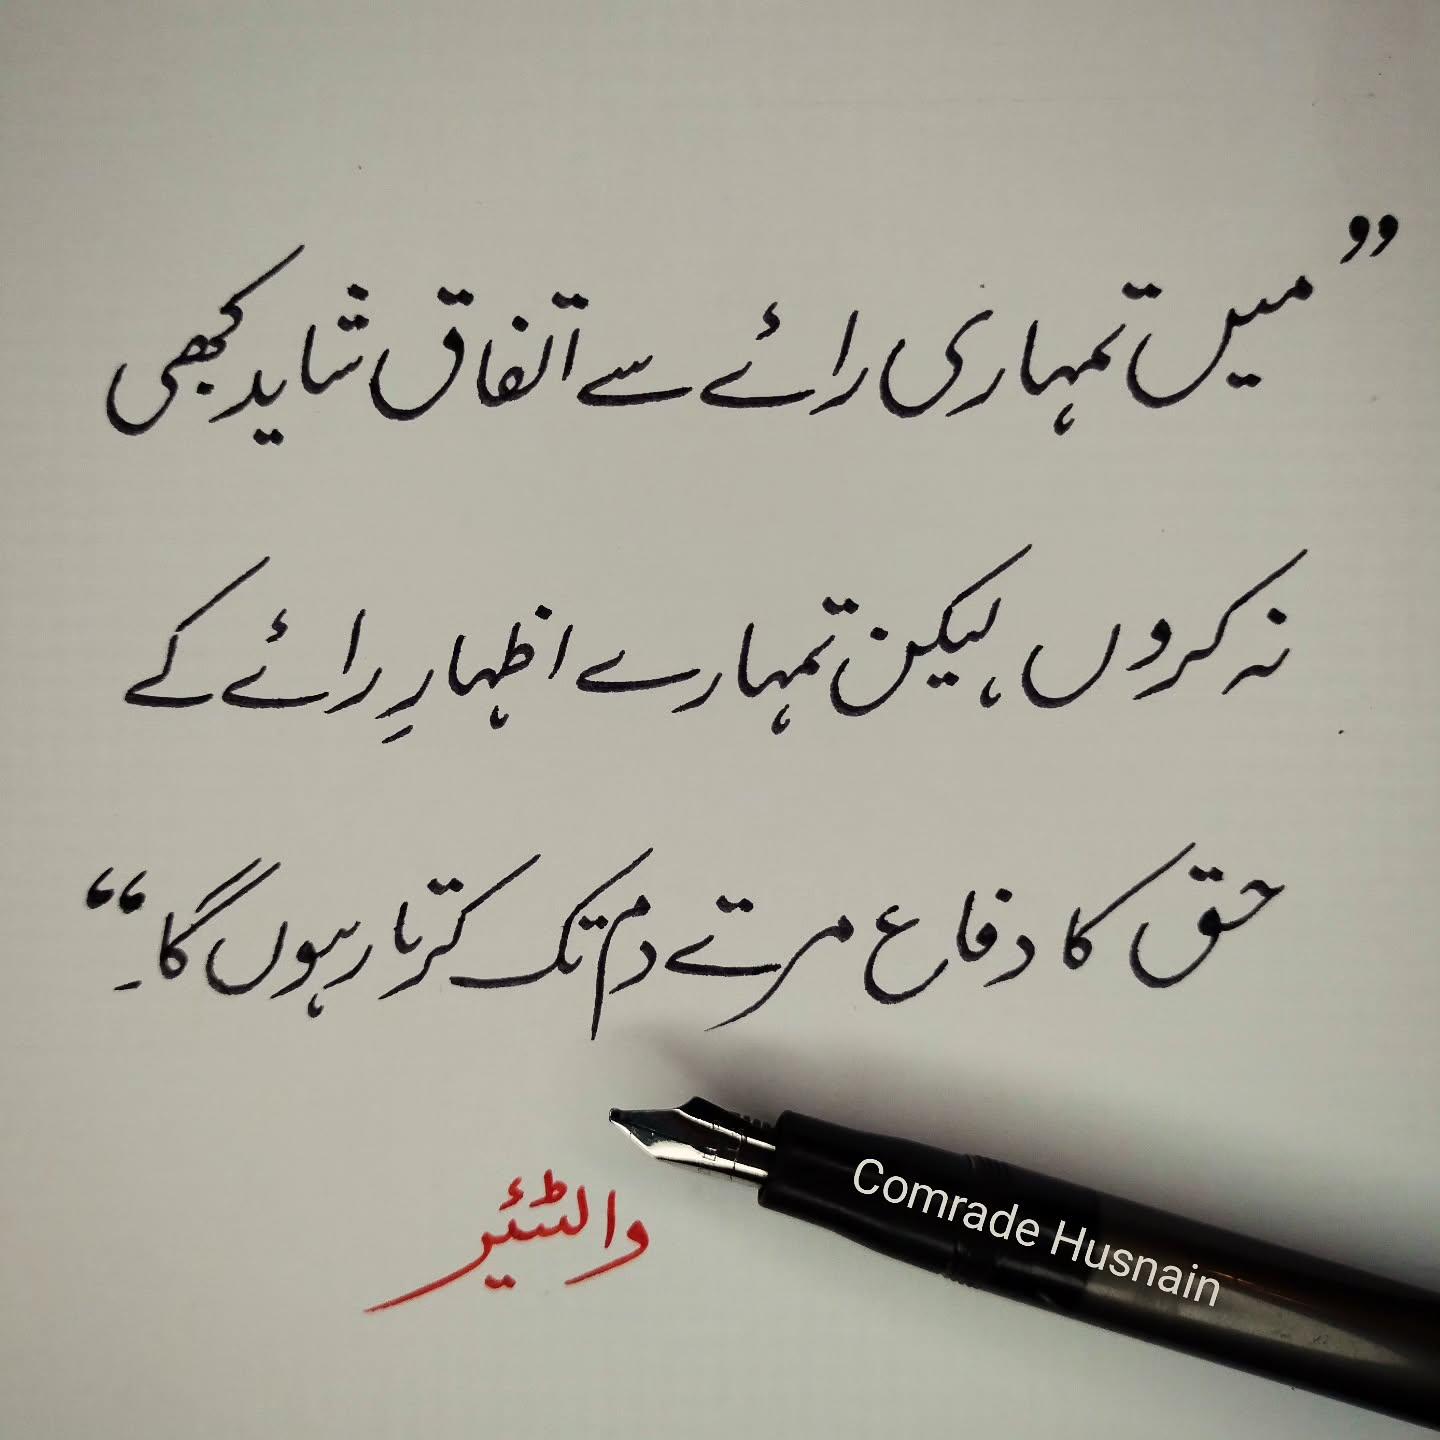 ”میں تمہاری رائے سے اتفاق شاید کبھی
نہ کروں، لیکن تمہارے اظہارِ رائے کے
حق کا دفاع مرتے دم تک کرتا رہوں گا۔“
والٹئیر
Comrade Husnain